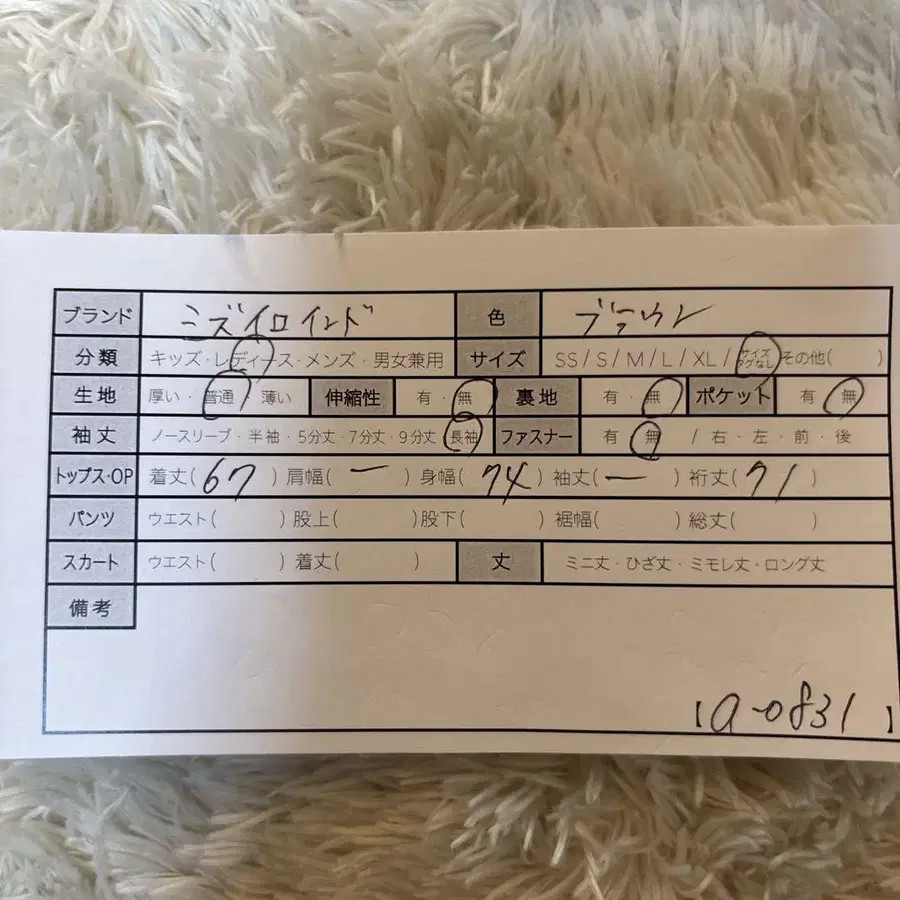 ブランド ミズイロインド 色 ブラウン
分類 キッズ・レディース・メンズ・男女兼用 サイズ SS/S/M/L/XL/サイズタグなし その他( )
生地 厚い・普通・薄い 伸縮性 有・無 裏地 有・無 ポケット 有・無
袖丈 ノースリーブ・半袖・5分丈・7分丈・9分丈・長袖 ファスナー 有・無 / 右・左・前・後
トップス・OP 着丈(67) 肩幅(ー) 身幅(74) 袖丈(ー) 裄丈(71)
パンツ ウエスト( ) 股上( ) 股下( ) 裾幅( ) 総丈( )
スカート ウエスト( ) 着丈( ) 丈 ミニ丈・ひざ丈・ミモレ丈・ロング丈
備考
【a-0831】